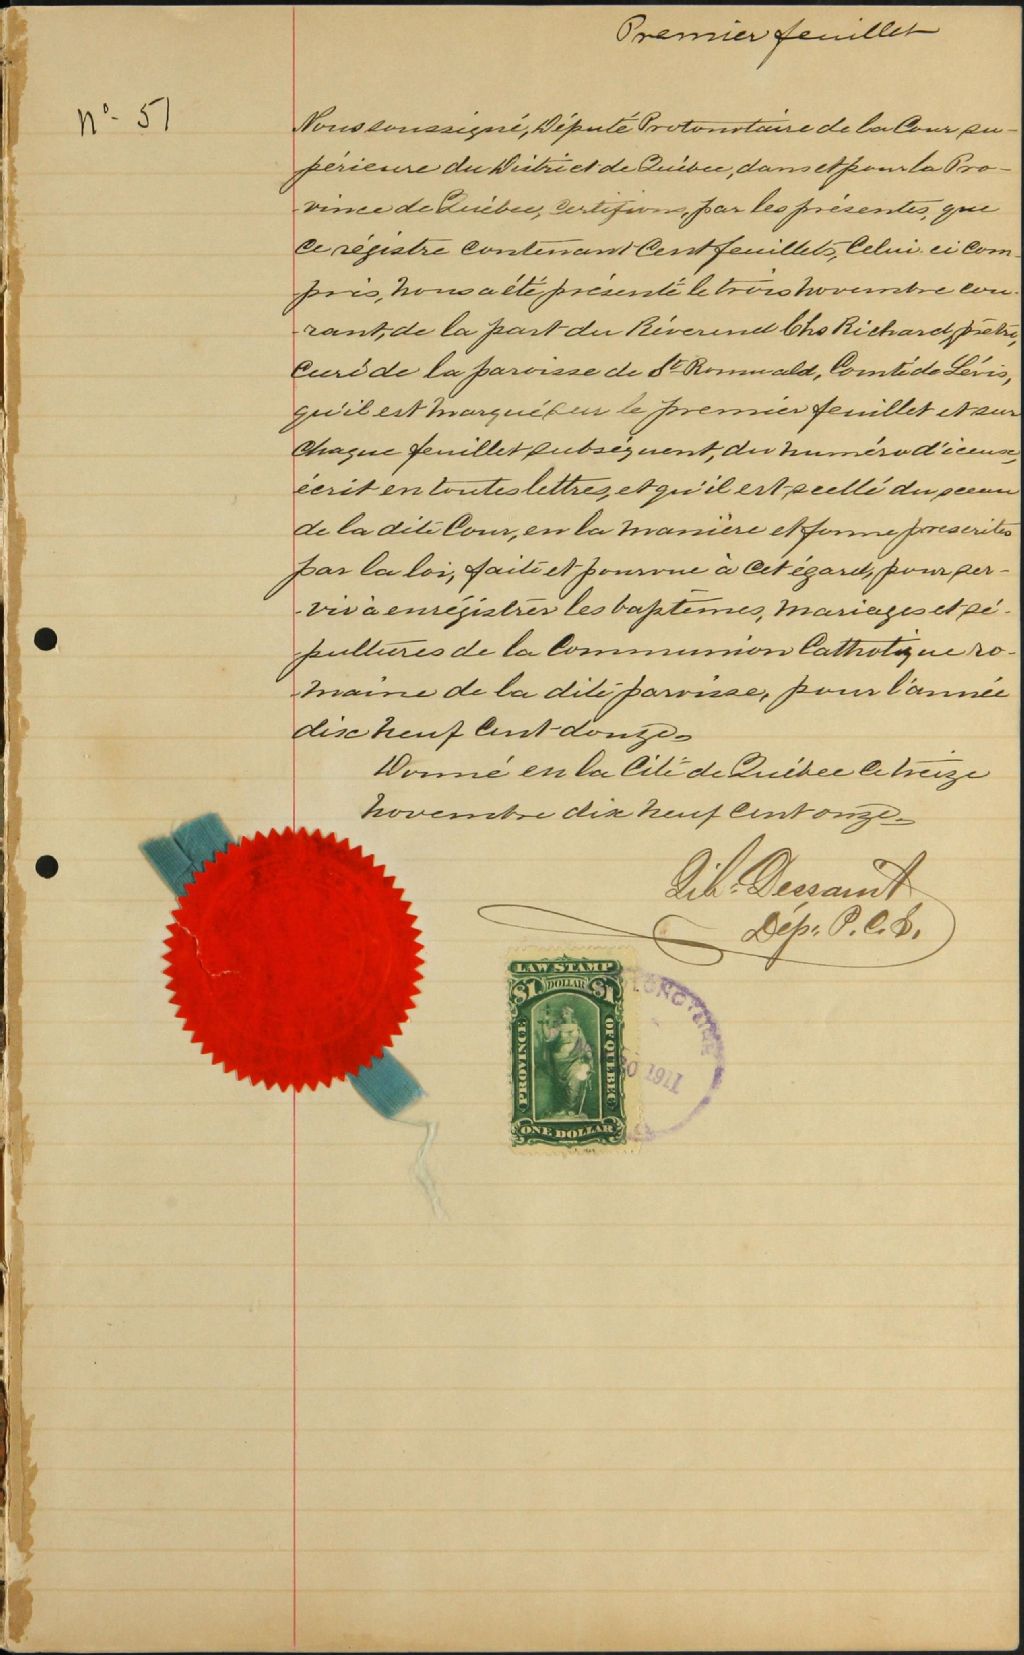 Premier feuillet
No. 51
Nous soussigné, Député Protonotaire de la Cour su-
périeure du District de Québec, dans et pour la Pro-
-vince de Québec, certifions, par les présentes, que
ce régistre contenant cent feuillets, celui ci com-
pris, nous a été présenté le trois novembre cou-
-rant, de la part du Révérend Chs Richard, prêtre,
curé de la paroisse de St Romuald, Comté de Lévis,
qu'il est marqué sur le premier feuillet et sur
chaque feuillet subséquent, du numéro d'iceux,
écrit en toutes lettres, et qu'il est scellé du sceau
de la dite Cour, en la manière et forme prescrites
par la loi, faite et pourvue à cet égard, pour ser-
-vir à enrégistrer les baptêmes, mariages et sé-
pultures de la Communion Catholique ro-
-maine de la dite paroisse, pour l'année
dix neuf cent douze.
Donné en la Cité de Québec ce treize
novembre dix neuf cent onze.
Dessaint
Dép. P. C. S.
LAW STAMP
$1 DOLLAR $1
PROVINCE OF QUEBEC
ONE DOLLAR
30 1911